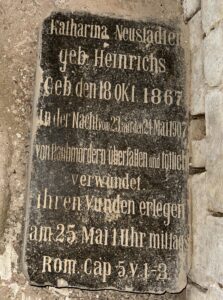 Katharina Neustädter
geb. Heinrichs
Geb den 18 OKT 1867
In der Nacht von 23 auf den 24 Mai 1907
von Raubmördern überfallen und tötlich
verwundet
ihren Wunden erlegen
am 25 Mai 1 Uhr mittags
Rom. Cap 5.V.1-3.